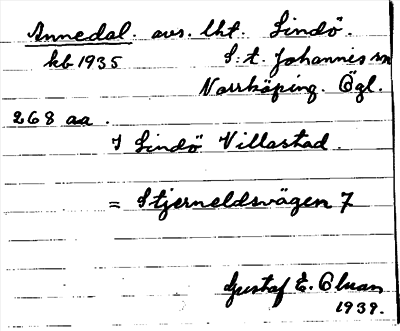 Annedal. avs. lht. Lindö.
kb 1935 S.t. Johannes sn
Norrköping. Ögl.
268 aa.
I Lindö Villastad.
= Stjerneldsvägen 7
Gustaf E.
1939.